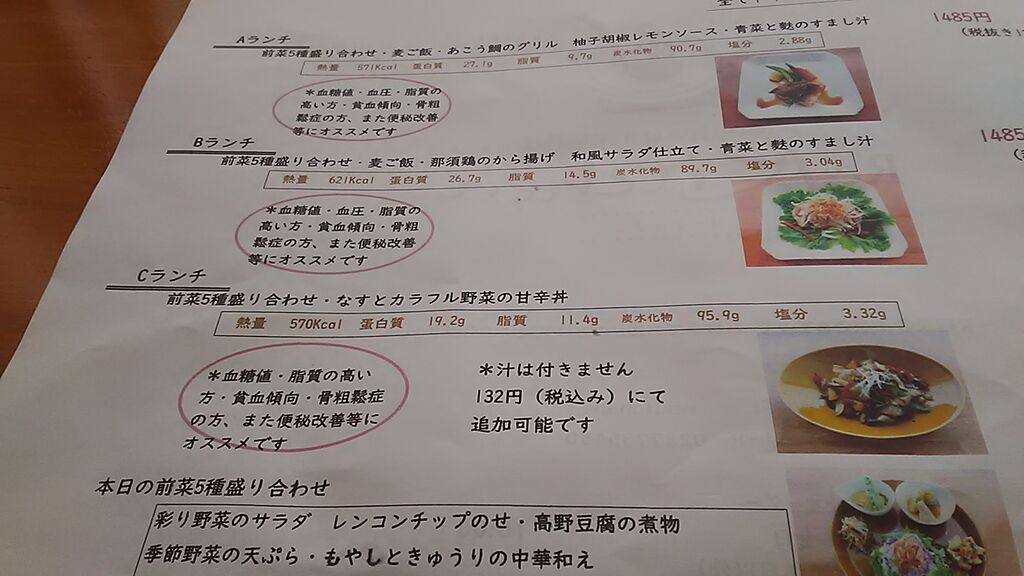 1485円
Aランチ
前菜5種盛り合わせ・麦ご飯・あこう鯛のグリル 柚子胡椒レモンソース・青菜と麩のすまし汁
熱量 571Kcal 蛋白質 27.1g 脂質 9.7g 炭水化物 90.7g 塩分 2.88g
*血糖値・血圧・脂質の
高い方・貧血傾向・骨粗
鬆症の方、また便秘改善
等にオススメです
1485
Bランチ
前菜5種盛り合わせ・麦ご飯・那須鶏のから揚げ 和風サラダ仕立て・青菜と麩のすまし汁
熱量 621Kcal 蛋白質 26.7g 脂質 14.5g 炭水化物 89.7g 塩分 3.04g
*血糖値・血圧・脂質の
高い方・貧血傾向・骨粗
鬆症の方、また便秘改善
等にオススメです
Cランチ
前菜5種盛り合わせ・なすとカラフル野菜の甘辛丼
熱量 570Kcal 蛋白質 19.2g 脂質 11.4g 炭水化物 95.9g 塩分 3.32g
*血糖値・脂質の高い
方・貧血傾向・骨粗鬆症
の方、また便秘改善等に
オススメです
*汁は付きません
132円(税込み)にて
追加可能です
本日の前菜5種盛り合わせ
彩り野菜のサラダ レンコンチップのせ・高野豆腐の煮物
季節野菜の天ぷら・もやしときゅうりの中華和え